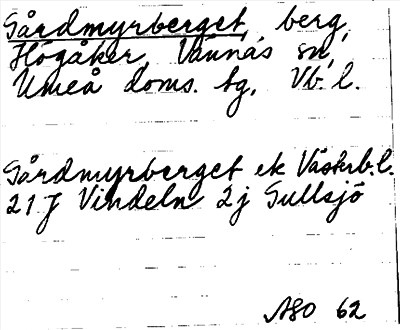 Gårdmyrberget, berg,
Högåker, Vännäs sn,
Umeå doms. tg, Vb. l.
Gårdmyrberget ek Västerb.l.
21 J Vindeln 2j Gullsjö
ASO 62